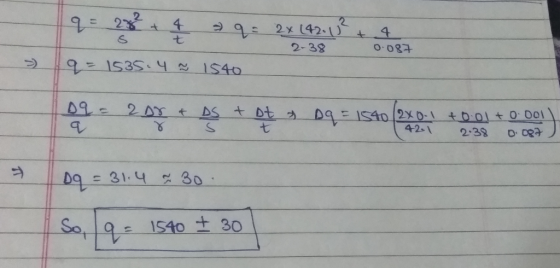 q = 2r²/s + 4/t ⇒ q = 2×(42.1)²/2.38 + 4/0.087
⇒ q = 1535.4 ≈ 1540
Δq/q = 2Δr/r + Δs/s + Δt/t ⇒ Δq = 1540(2×0.1/42.1 + 0.01/2.38 + 0.001/0.087)
⇒ Δq = 31.4 ≈ 30.
So, q = 1540 ± 30